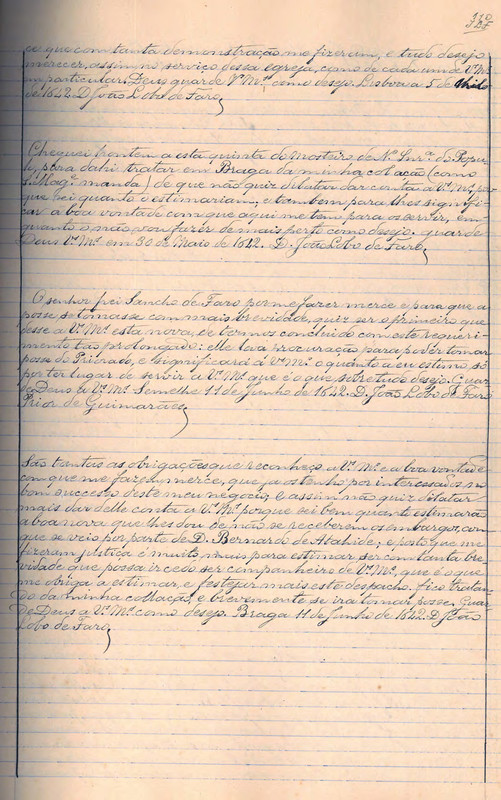 ca que com tanta demonstração me fizeram, e tudo desejo
merecer, assim no serviço dessa egreja, como de cada um de Vªˢ Mᶜᵉˢ
em particular. Deus guarde Vªˢ Mᶜᵉˢ, como desejo. Lisboa a 5 de
de 1642. D. João Lobo de Faro,
Cheguei hontem a esta quinta do Mosteiro de Nª Snrª do Popu-
lo, para dahi tratar em Braga da minha colação (como
S. Magᵉ manda) de que não quiz dilatar dar conta a Vªˢ Mᶜᵉˢ por-
que sei quanto o estimariam, e tambem para lhes signifi-
car a boa vontade com que aqui me tem para os servir, em
quanto o não vou fazer de mais perto como desejo. guarde
Deus Vªˢ Mᶜᵉˢ em 30 de Maio de 1642. D. João Lobo de Faro,
O senhor frei Sancho de Faro por me fazer mercê e para que a
posse se tomasse com mais brevidade, quiz ser o primeiro que
desse a Vªˢ Mᶜᵉˢ esta nova, de termos concluido com este requeri-
mento tão prolongado: elle leva procuração para poder tomar
posse do Priorado, e significará á Vªˢ Mᶜᵉˢ o quanto a eu estimo, só
por ter lugar de servir a Vªˢ Mᶜᵉˢ que é o que sobretudo desejo. Guar-
de Deus a Vªˢ Mᶜᵉˢ Semelhe 11 de Junho de 1642. D. João Lobo de Faro
Prior de Guimarães,
São tantas as obrigações que reconheço a Vªˢ Mᶜᵉˢ e a boa vontade
com que me fazem merce, que ja os tenho por interessados no
bom successo deste meu negocio, e assim não quiz dilatar
mais dar delle conta a Vªˢ Mᶜᵉˢ porque sei bem quanto estimarão
a boa nova que lhes dou de não se receberem os embargos, com
que se veio por parte de D. Bernardo de Atahide; e posto que me
fizeram justiça é muito mais para estimar ser com tanta bre-
vidade que possa ir cedo ser companheiro de Vªˢ Mᶜᵉˢ, que é o que
me obriga a estimar, e festejar mais este despacho. fico tratan-
do da minha collação, e brevemente se irá tomar posse. Guar-
de Deus a Vªˢ Mᶜᵉˢ como desejo. Braga 11 de Junho de 1642. D. João
Lobo de Faro,